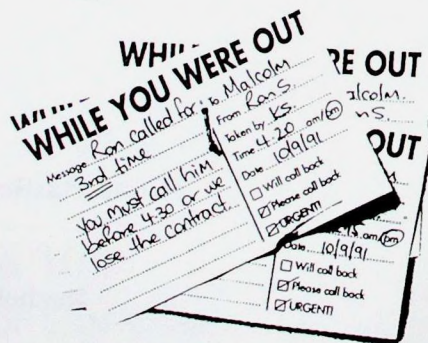 WHILE YOU WERE OUT
Message Ron called for
3rd time
You must call him
before 4.30 or we
lose the contract
To Malcolm
From Ron S.
Taken by KS.
Time 4.20 am/pm
Date 10/9/91
Will call back
Please call back
URGENT!
RE OUT
alcolm
n S.
OUT
am/pm
Date 10/9/91
Will call back
Please call back
URGENT!